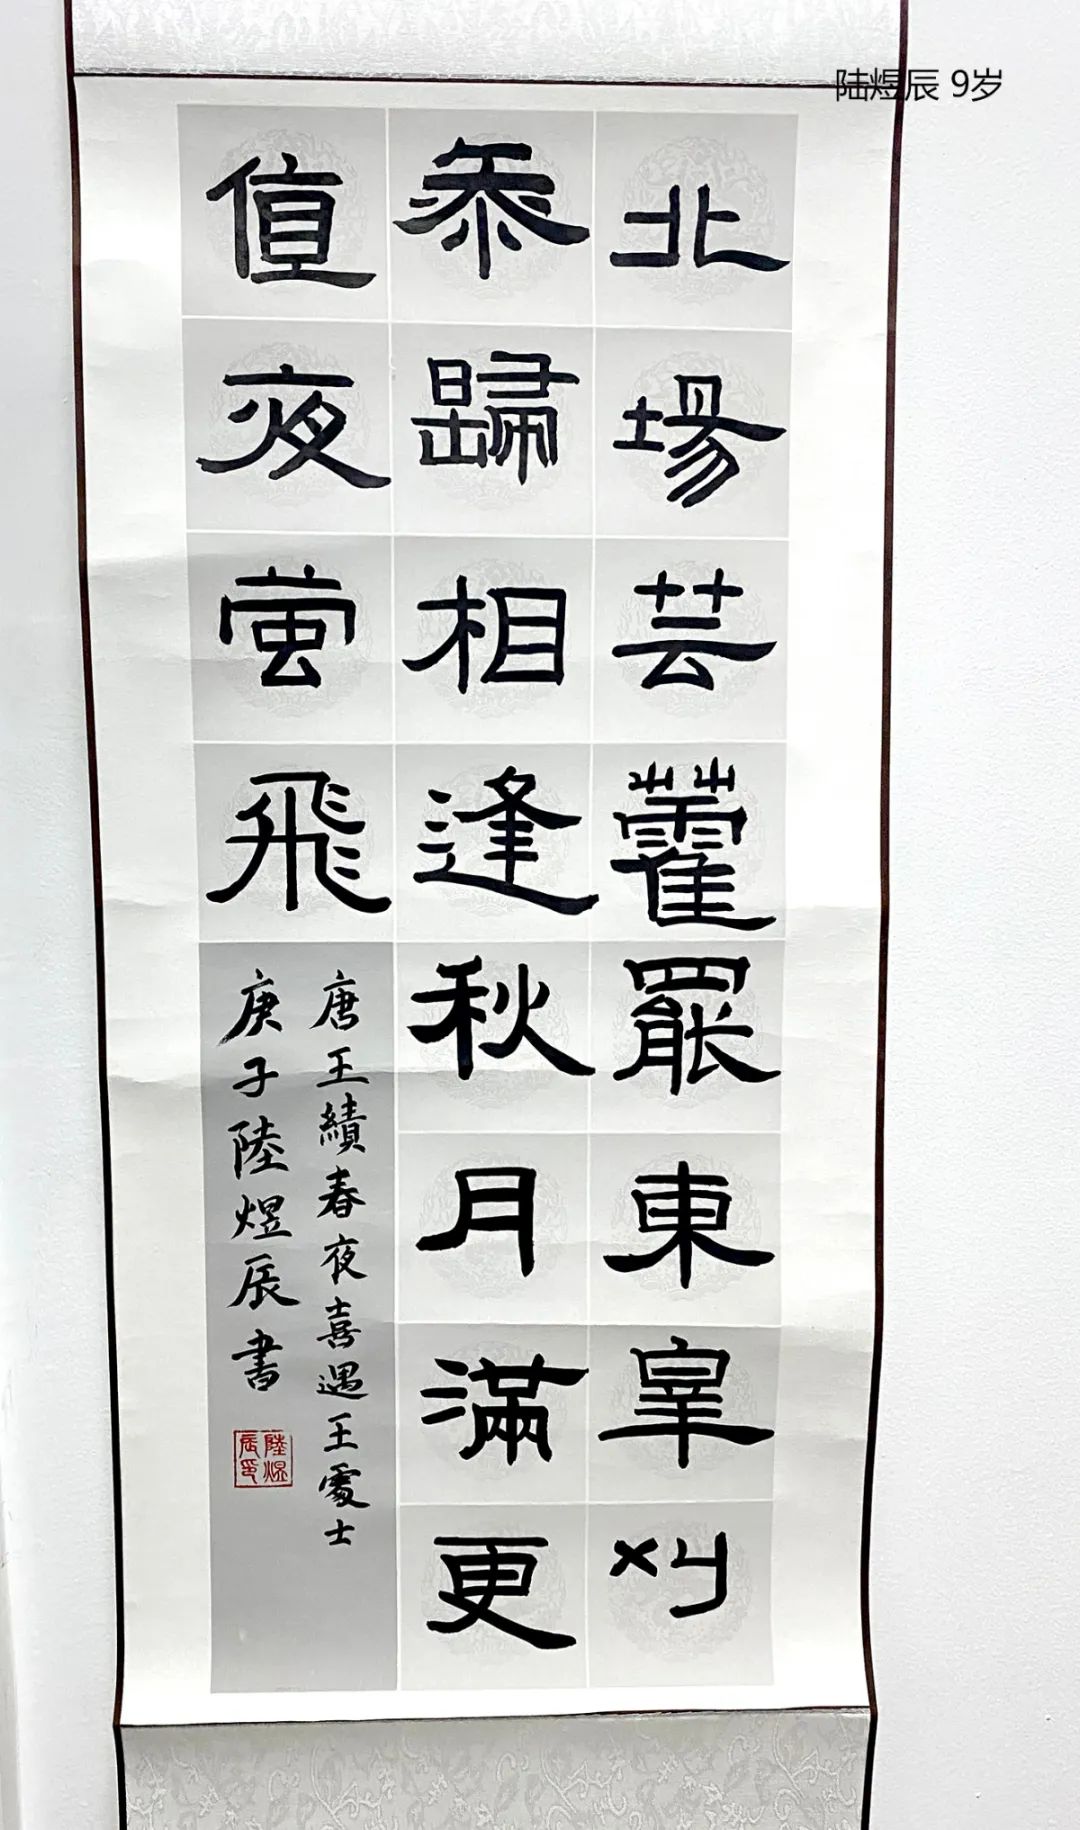 陆煜辰 9岁
北場芸藿罷東皐刈
黍歸相逢秋月滿更
值夜螢飛
唐王績春夜喜遇王處士
庚子陸煜辰書
陸煜辰印